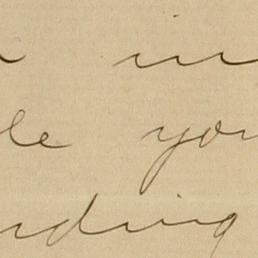 in
le you
nding